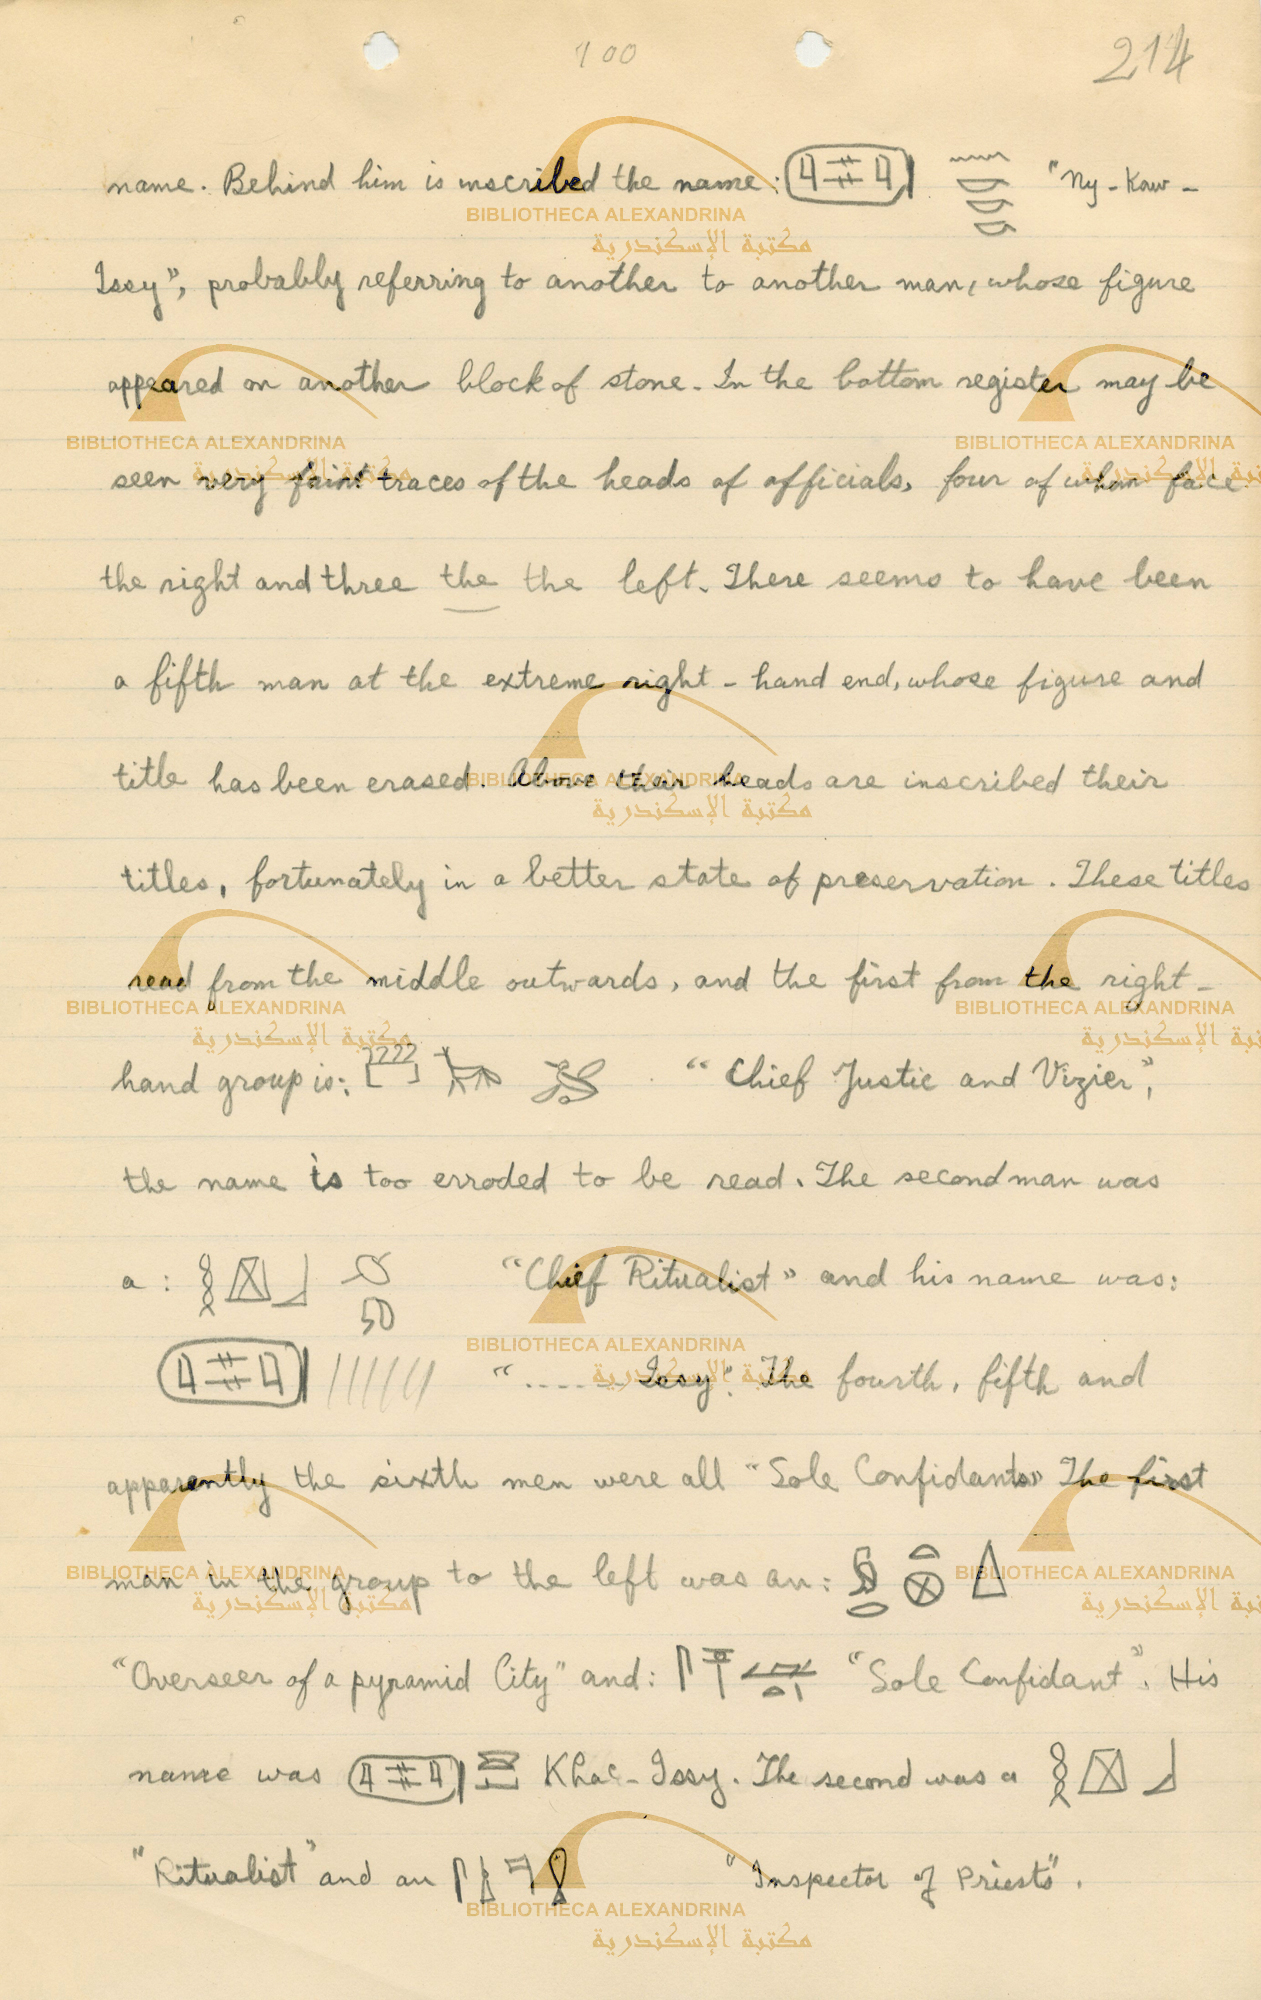 100
214
name. Behind him is inscribed the name: "Ny-Kaw-
Issy", probably referring to another to another man, whose figure
appeared on another block of stone. In the bottom register may be
seen very faint traces of the heads of officials, four of whom face
the right and three the the left. There seems to have been
a fifth man at the extreme right-hand end, whose figure and
title has been erased. Above their heads are inscribed their
titles, fortunately in a better state of preservation. These titles
read from the middle outwards, and the first from the right-
hand group is: "Chief Justic and Vizier",
the name is too erroded to be read. The second man was
a: "Chief Ritualist" and his name was:
"...... Issy". The fourth, fifth and
apparently the sixth men were all "Sole Confidants" The first
man in the group to the left was an:
"Overseer of a pyramid City" and: "Sole Confidant". His
name was Khac-Issy. The second was a
"Ritualist" and an "Inspector of Priests".
BIBLIOTHECA ALEXANDRINA
مكتبة الإسكندرية